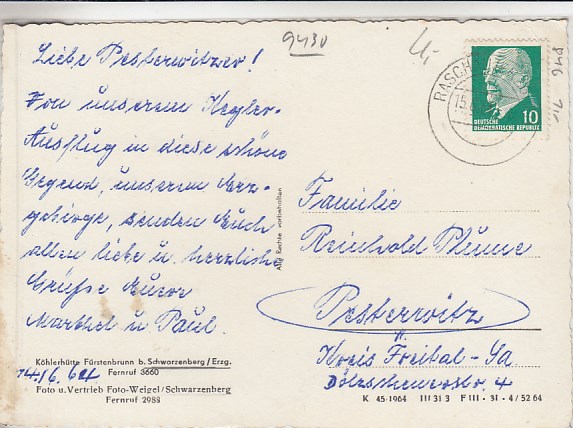 9430
Liebe Pesterwitzer!
Von unserem Kegler-
Ausflug in diese schöne
Gegend, unserem Erz-
gebirge, senden Euch
allen liebe u. herzliche
Grüße Euer
Marthel u Paul.
Köhlerhütte Fürstenbrunn b. Schwarzenberg/Erzg.
Fernruf 3660
14/6. 64
Foto u. Vertrieb Foto-Weigel/Schwarzenberg
Fernruf 2988
Alle Rechte vorbehalten
RASCH
15.
10
DEUTSCHE
DEMOKRATISCHE REPUBLIK
Familie
Reinhold Blume
Pesterwitz
Kreis Freital-Sa
Dölzschenerstr. 4
K 45-1964 III 31 3 F III · 31 · 4 / 52 64